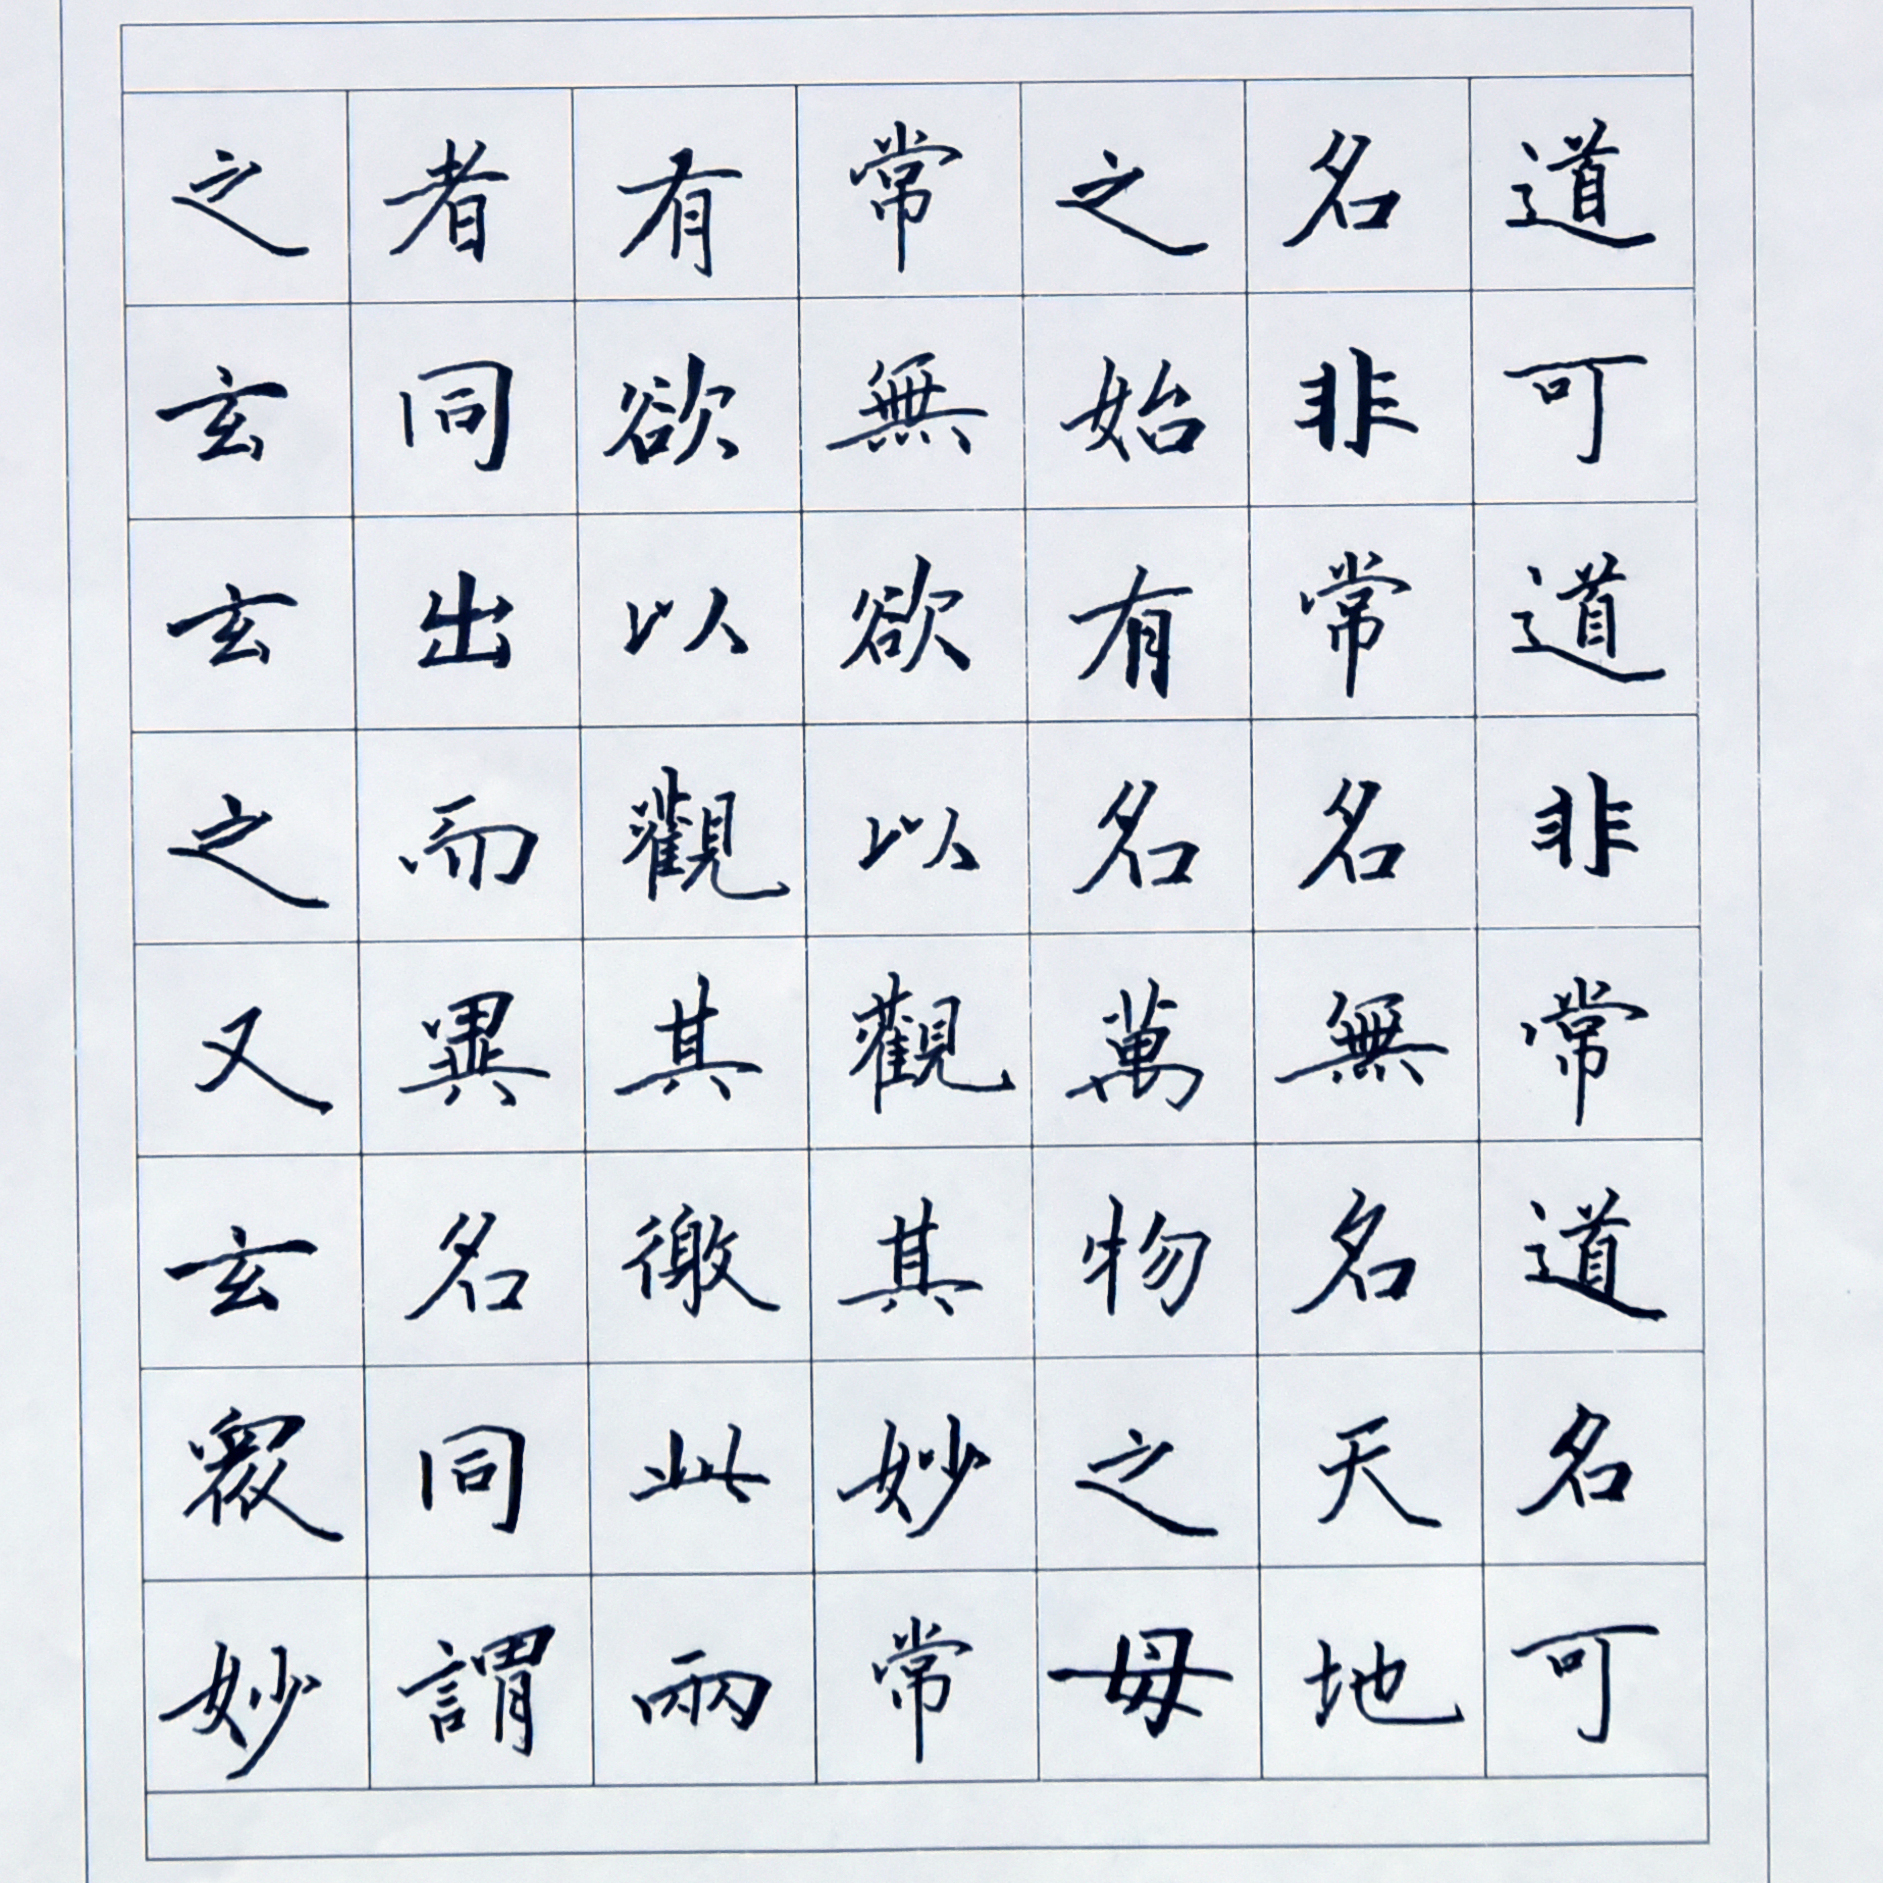 道可道非常道名可
名非常名無名天地
之始有名萬物之母
常無欲以觀其妙常
有欲以觀其徼此兩
者同出而異名同謂
之玄玄之又玄眾妙